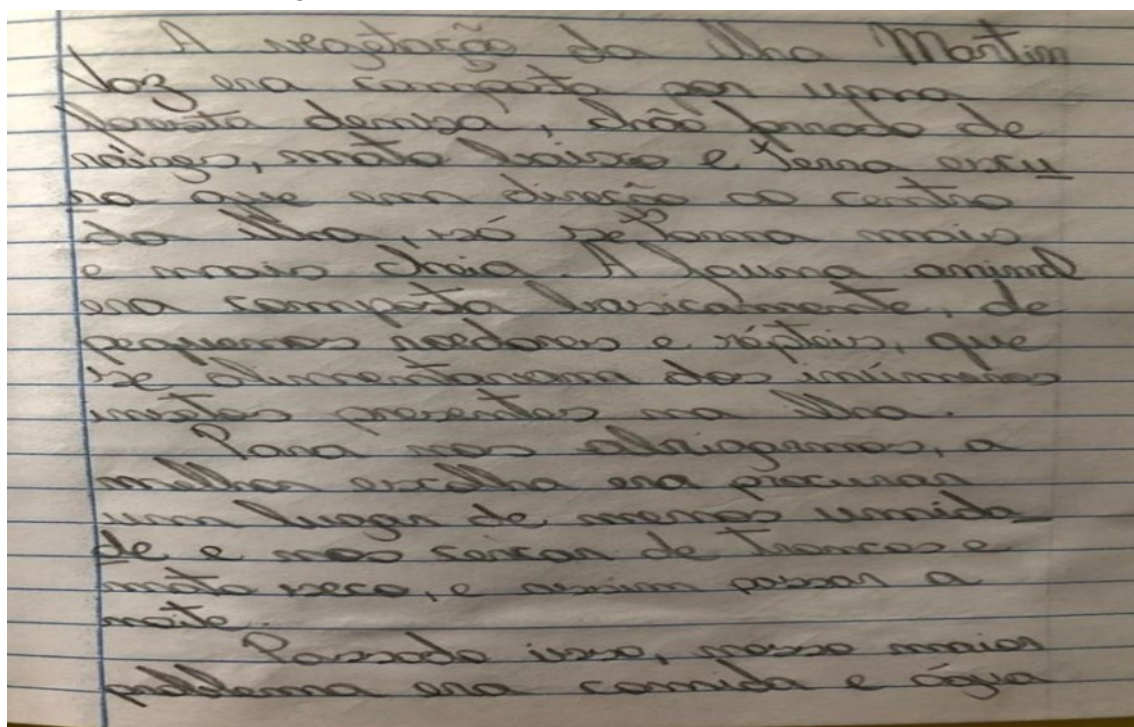 A vegetação da ilha Martin
Vaz era composta por uma
floresta densa, chão forrado de
raízes, mato baixo e terra escu
ra que em direção ao centro
da ilha, só se torna mais
e mais cheia. A fauna animal
era composta basicamente, de
pequenos roedores e répteis, que
se alimentavam dos inúmeros
insetos presentes na ilha.
Para nos abrigarmos, a
melhor escolha era procurar
um luagr de menos umida_
de e nos cercar de troncos e
mato seco, e assim passar a
noite.
Passado isso, nosso maior
problema era comida e água